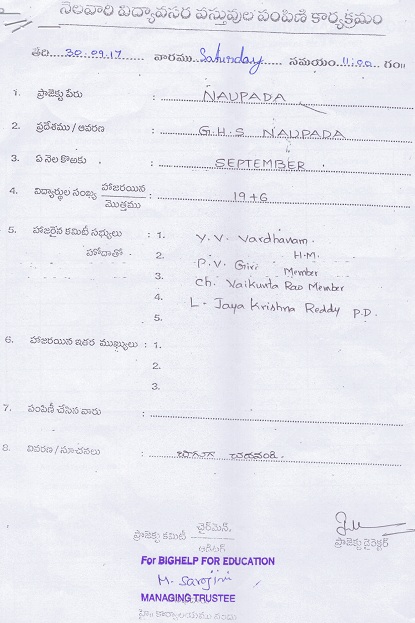 నెలవారి విద్యావసర వస్తువుల పంపిణి కార్యక్రమం
తేది 30.09.17 వారము Saturday సమయం 11:00 గం॥
1. ప్రాజెక్టు పేరు : NAUPADA
2. ప్రదేశము / ఆవరణ : G.H.S NAUPADA
3. ఏ నెల కొఱకు : SEPTEMBER
4. విద్యార్థుల సంఖ్య హాజరయిన : 19+6
మొత్తము
5. హాజరైన కమిటీ సభ్యులు : 1. Y.V. Vardhanam. H.M.
హోదాతో 2. P.V. Giri Member
3. Ch. Vaikunta Rao Member
4. L. Jaya Krishna Reddy P.D.
5.
6. హాజరయిన ఇతర ముఖ్యులు : 1.
2.
3.
7. పంపిణీ చేసిన వారు :
8. వివరణ / సూచనలు : బాగుగా చదవండి.
ప్రాజెక్టు కమిటీ చైర్మెన్. ప్రాజెక్టు డైరెక్టర్
ఆడిటర్
For BIGHELP FOR EDUCATION
M. Sarojini
MANAGING TRUSTEE
కార్యాలయము నందు